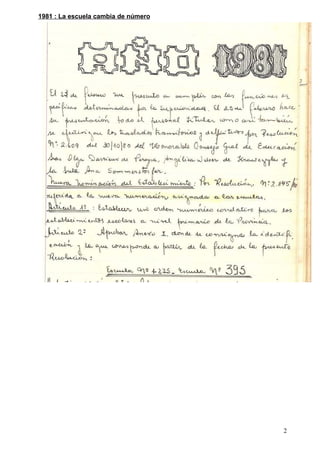 1981 : La escuela cambia de número
AÑO 1981
El 12 de febrero me presento a cumplir con las funciones es
pecíficas determinadas por la Superioridad. El 23 de febrero hace
su presentación todo el personal titular como así también
se efectivizan los traslados transitorios y definitivos por Resolución
Nº 2609 del 30/10/80 del Honorable Consejo Gral de Educación
Sras Olga
la Srta Ana
Nueva Nominación del Establecimiento: Por Resolución, Nº 2.845/80
referida a la nueva numeración asignada a las escuelas.
Artículo 1º: Establecer un orden numérico correlativo para los
establecimientos escolares a nivel primario de la Provincia.
Artículo 2º Aprobar Anexo I. donde se consigna la identifi
cación y la que corresponde a partir de la fecha de la presente
Resolución:
Escuela Nº 395
2